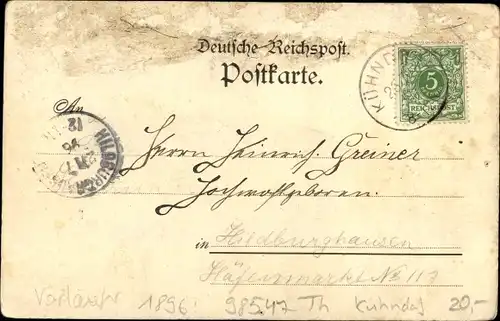 Deutsche Reichspost.
Postkarte.
KÜHND
5
REICHSPOST
An
12
96
HILDBURGH
Herrn Heinrich Greiner
Hochwohlgeboren
in Hildburghausen
Häfenmarkt No 113
1896 98547 Th Kuhndf 20,-